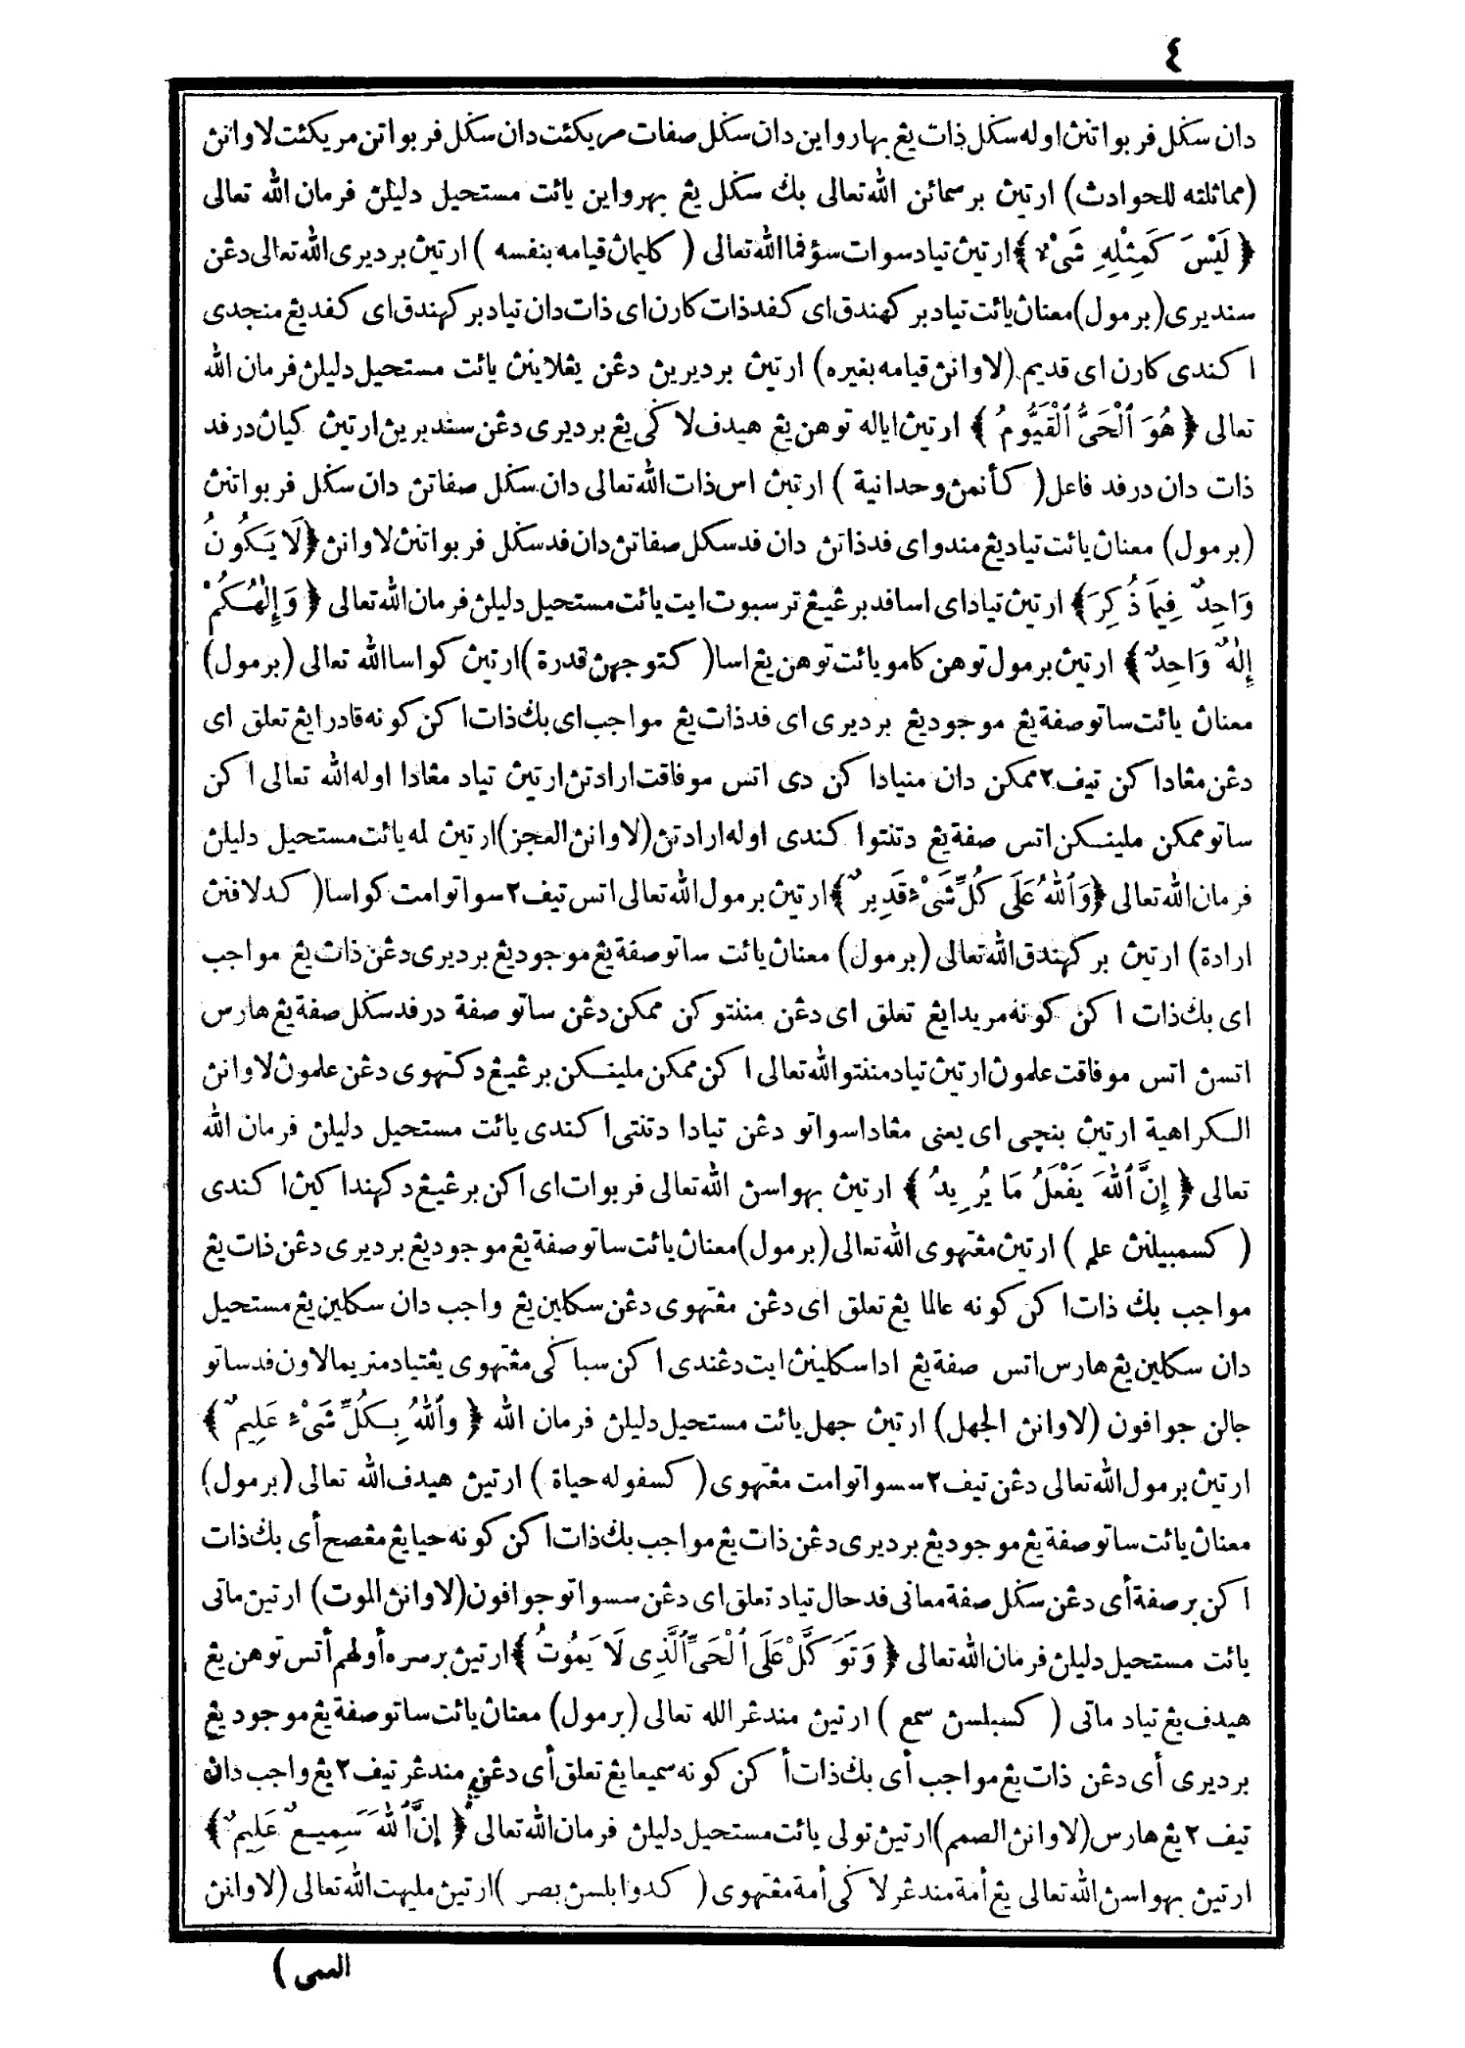 ٤
دان سكل فربواتنڽ اوله سكل ذات يڠ بهارو اين دان سكل صفات مريكئت دان سكل فربواتن مريكئت لاوانڽ
(مماثلته للحوادث) ارتيڽ برسمائن الله تعالى بݢ سكل يڠ بهرو اين يائت مستحيل دليلڽ فرمان الله تعالى
﴿ لَيْسَ كَمِثْلِهِ شَىْءٌ ﴾ ارتيڽ تياد سوات سؤفما الله تعالى ( كليماڽ قيامه بنفسه ) ارتيڽ برديرى الله تعالى دڠن
سنديرى (برمول) معناڽ يائت تياد بركهندق اى كفد ذات كارن اى ذات دان تياد بركهندق اى كفد يڠ منجدى
اكندى كارن اى قديم (لاوانڽ قيامه بغيره) ارتيڽ برديريڽ دڠن يڠلاينڽ يائت مستحيل دليلڽ فرمان الله
تعالى ﴿ هُوَ ٱلْحَىُّ ٱلْقَيُّومُ ﴾ ارتيڽ اياله توهن يڠ هيدف لاكى يڠ برديرى دڠن سنديرين ارتيڽ كيان درفد
ذات دان درفد فاعل ( كأنمڽ وحدانية ) ارتيڽ اس ذات الله تعالى دان سكل صفاتن دان سكل فربواتنڽ
(برمول) معناڽ يائت تياد يڠ مندواى فد ذاتن دان فد سكل صفاتن دان فد سكل فربواتنڽ لاوانڽ ﴿لَا يَكُونُ
وَاحِدٌ فِيمَا ذُكِرَ﴾ ارتيڽ تياداى اسا فد برڠيڠ ترسبوت ايت يائت مستحيل دليلڽ فرمان الله تعالى ﴿ وَإِلٰهُكُمْ
إِلٰهٌ وَاحِدٌ ﴾ ارتيڽ برمول توهن كامو يائت توهن يڠ اسا ( كتوجهڽ قدرة ) ارتيڽ كواسا الله تعالى (برمول)
معناڽ يائت ساتو صفة يڠ موجود يڠ برديرى اى فد ذات يڠ مواجب اى بݢ ذات اكن كونه قادرا يڠ تعلق اى
دڠن مڠادا كن تيف ٢ ممكن دان منيادا كن دى اتس موفاقت ارادتن ارتيڽ تياد مڠادا اوله الله تعالى اكن
ساتو ممكن ملينكن اتس صفة يڠ دتنتوا كندى اوله ارادتن (لاوانڽ العجز) ارتيڽ لمه يائت مستحيل دليلڽ
فرمان الله تعالى ﴿وَٱللهُ عَلَى كُلِّ شَىْءٍ قَدِيرٌ ﴾ ارتيڽ برمول الله تعالى اتس تيف ٢ سواتو امت كواسا ( كدلافنڽ
ارادة) ارتيڽ بركهندق الله تعالى (برمول) معناڽ يائت ساتو صفة يڠ موجود يڠ برديرى دڠن ذات يڠ مواجب
اى بݢ ذات اكن كونه مريدا يڠ تعلق اى دڠن مننتوكن ممكن دڠن ساتو صفة درفد سكل صفة يڠ هارس
اتسن اتس موفاقت علمون ارتيڽ تياد مننتو الله تعالى اكن ممكن ملينكن برڠيڠ دكتهوى دڠن علمون لاوانڽ
الكراهية ارتيڽ بنچى اى يعنى مڠادا سواتو دڠن تيادا دتنتى اكندى يائت مستحيل دليلڽ فرمان الله
تعالى ﴿ إِنَّ ٱللهَ يَفْعَلُ مَا يُرِيدُ ﴾ ارتيڽ بهواسن الله تعالى فربوات اى اكن برڠيڠ دكهنداكيڽ اكندى
( كسمبيلنڽ علم ) ارتيڽ مڠتهوى الله تعالى (برمول) معناڽ يائت ساتو صفة يڠ موجود يڠ برديرى دڠن ذات يڠ
مواجب بݢ ذات اكن كونه عالما يڠ تعلق اى دڠن مڠتهوى دڠن سكلين يڠ واجب دان سكلين يڠ مستحيل
دان سكلين يڠ هارس اتس صفة يڠ ادا سكلينڽ ايت دڠندى اكن سباكى مڠتهوى يڠتياد منريما لاون فد ساتو
جالن جوافون (لاوانڽ الجهل) ارتيڽ جهل يائت مستحيل دليلڽ فرمان الله ﴿ وٱللهُ بِكُلِّ شَىْءٍ عَلِيمٌ ﴾
ارتيڽ برمول الله تعالى دڠن تيف ٢ سسواتو امت مڠتهوى ( كسفوله حياة ) ارتيڽ هيدف الله تعالى (برمول)
معناڽ يائت ساتو صفة يڠ موجود يڠ برديرى دڠن ذات يڠ مواجب بݢ ذات اكن كونه حيا يڠ مڠصح أى بݢ ذات
اكن برصفة أى دڠن سكل صفة معانى فد حال تياد تعلق اى دڠن سسواتو جوافون (لاوانڽ الموت) ارتيڽ ماتى
يائت مستحيل دليلڽ فرمان الله تعالى ﴿ وَتَوَكَّلْ عَلَى ٱلْحَىِّ ٱلَّذِى لَا يَمُوتُ ﴾ ارتيڽ برسره أولهم أتس توهن يڠ
هيدف يڠ تياد ماتى ( كسبلسڽ سمع ) ارتيڽ مندڠر الله تعالى (برمول) معناڽ يائت ساتو صفة يڠ موجود يڠ
برديرى أى دڠن ذات يڠ مواجب أى بݢ ذات أكن كونه سميعا يڠ تعلق أى دڠن مندڠر تيف ٢ يڠ واجب دان
تيف ٢ يڠ هارس (لاوانڽ الصمم) ارتيڽ تولى يائت مستحيل دليلڽ فرمان الله تعالى ﴿ إنَّ ٱللهَ سَمِيعٌ عَلِيمٌ ﴾
ارتيڽ بهواسن الله تعالى يڠ أمة مندڠر لاكى أمة مڠتهوى ( كدوابلسڽ بصر ) ارتيڽ مليهت الله تعالى (لاوانڽ
العمى )